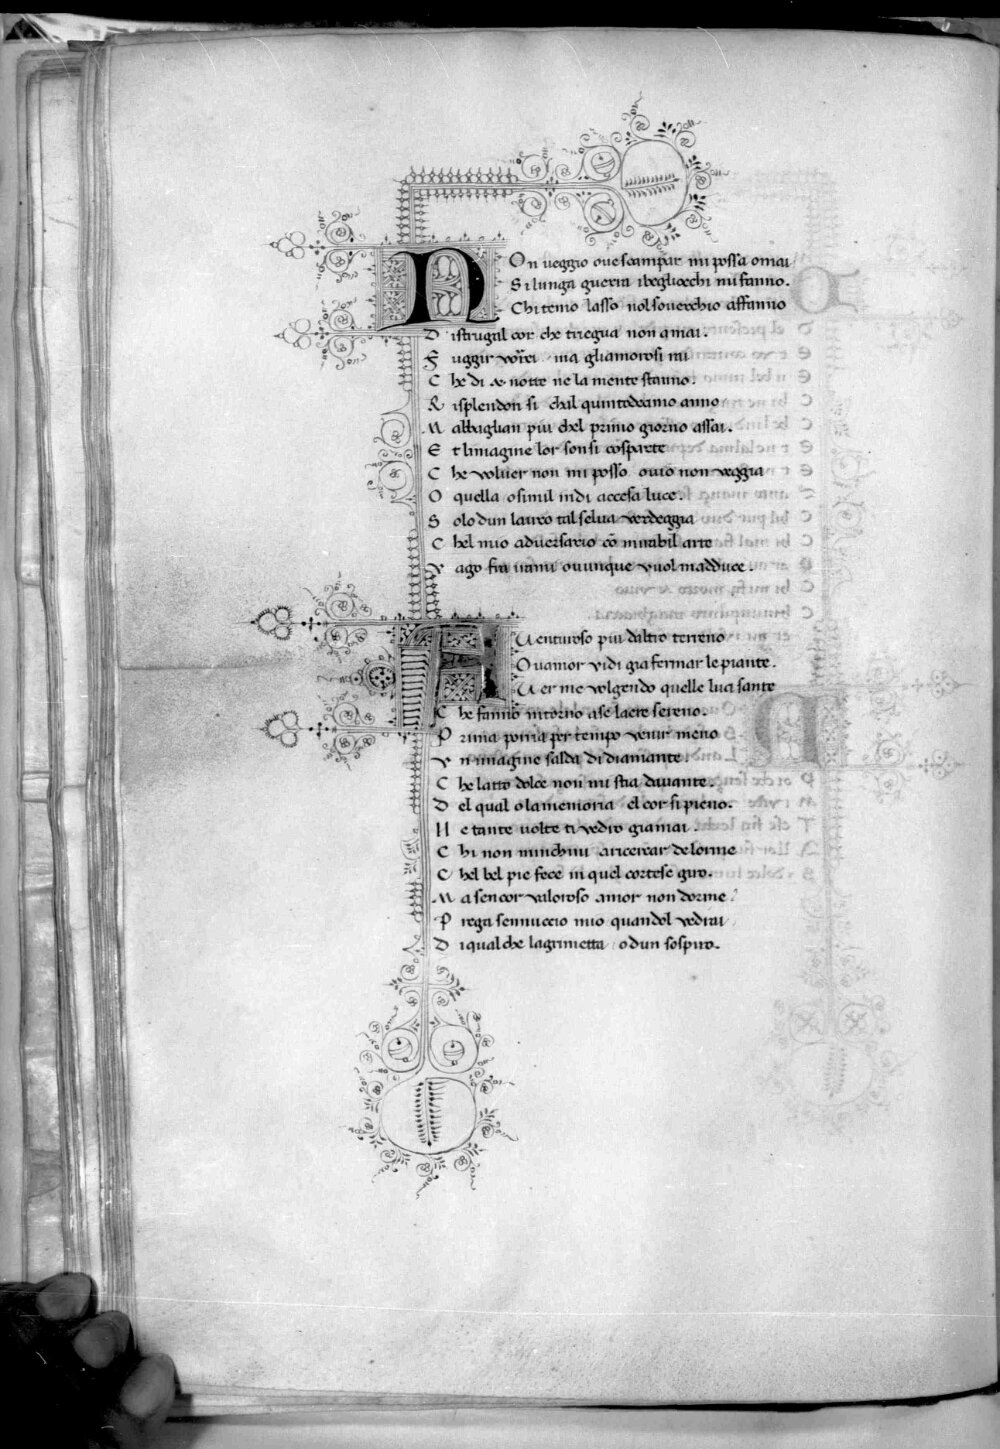 NOn ueggio oue scampar mi possa omai
Si lunga guerra ibegliocchi mi fanno.
Chi temo lasso nol souerchio affanno
Distrugal cor che triegua non a mai.
Fuggir vorrei ma gliamorosi rai
Che di & notte ne la mente stanno.
Risplendon si chil quintodecimo anno
Mabbaglian piu chel primo giorno assai.
Et limagine lor son si cosparte
Che voluer non mi posso ouio non veggia
O quella o simil indi accesa luce.
Solo dun lauro tal selua verdeggia
Chel mio aduersario cō mirabil arte
Vago fra irami ouunque vuol madduce.
AUenturoso piu daltro terreno
Ouamor vidi gia fermar le piante.
Uer me volgendo quelle luci sante
Che fanno intorno ase laere sereno.
Prima poria per tempo venir meno
Vn imagine salda di diamante
Che latto dolce non mi stia dauante.
Del qual o la memoria el cor si pieno.
Ne tante uolte ti vedro giamai.
Chi non minchini a ricercar de lorme
Chel bel pie fece in quel cortese giro.
Ma sencor valoroso amor non dorme
Prega sennuccio mio quandol vedrai
Di qualche lagrimetta / o dun sospiro.